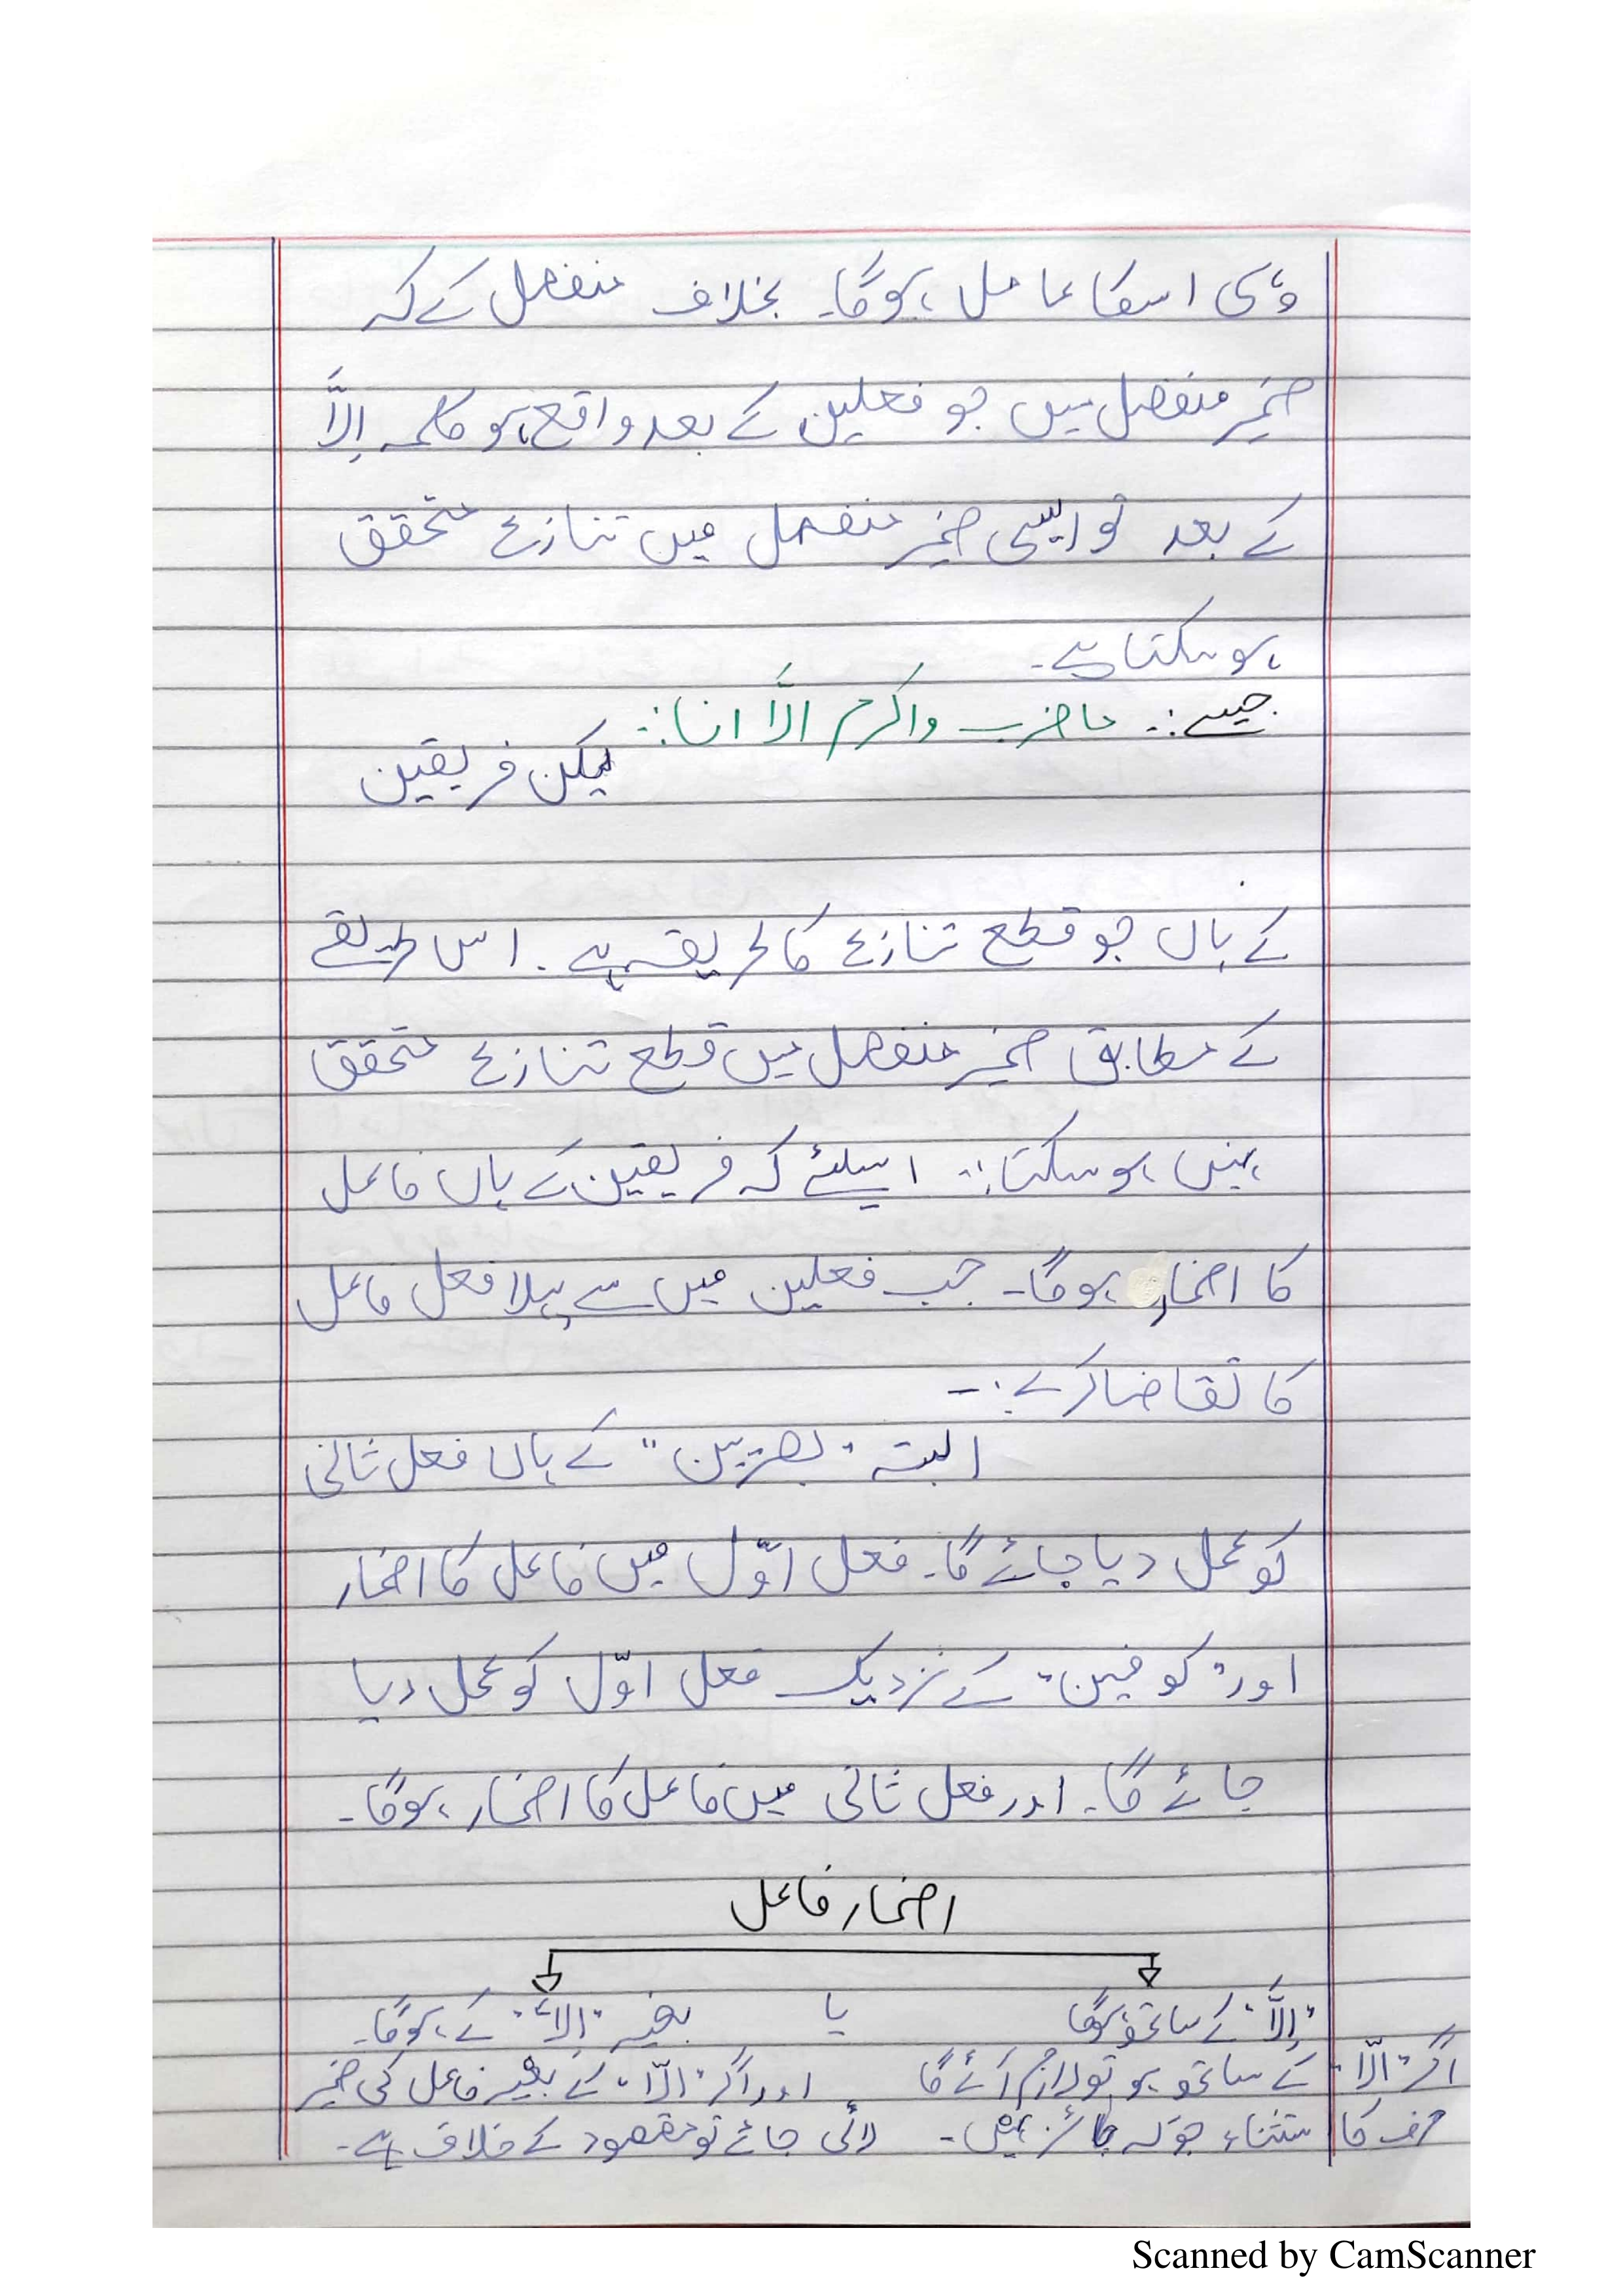 وہی اسکا عامل ہوگا۔ بخلاف منفصل کے کہ
ضمیر منفصل میں جو فعلین کے بعد واقع ہو کلمہ اِلَّا
کے بعد تو ایسی ضمیر منفصل میں تنازع متحقق
ہو سکتا ہے۔
جیسے:۔ ماضرب واکرم الَّا انا:۔
لیکن فریقین
کے ہاں جو قطع تنازع کا طریقہ ہے۔ اس طریقے
کے مطابق ضمیر منفصل میں قطع تنازع متحقق
نہیں ہو سکتا:۔ اسلئے کہ فریقین کے ہاں فاعل
کا اضمار ہوگا۔ جب فعلین میں سے پہلا فعل فاعل
کا تقاضا کرے:۔
البتہ "بصریین" کے ہاں فعل ثانی
کو عمل دیا جائے گا۔ فعل اوّل میں فاعل کا اضمار
اور "کوفیین" کے نزدیک فعل اوّل کو عمل دیا
جائے گا۔ اور فعل ثانی میں فاعل کا اضمار ہوگا۔
اضمار فاعل
"اِلَّا" کے ساتھ ہوگا یا بغیر "اِلَّا" کے ہوگا۔
اگر "الّا" کے ساتھ ہو تو لازم آئے گا اور اگر "الّا" کے بغیر فاعل کی ضمیر
حرف کا استثناء جو کہ جائز نہیں۔ لائی جائے تو مقصود کے خلاف ہے۔
Scanned by CamScanner